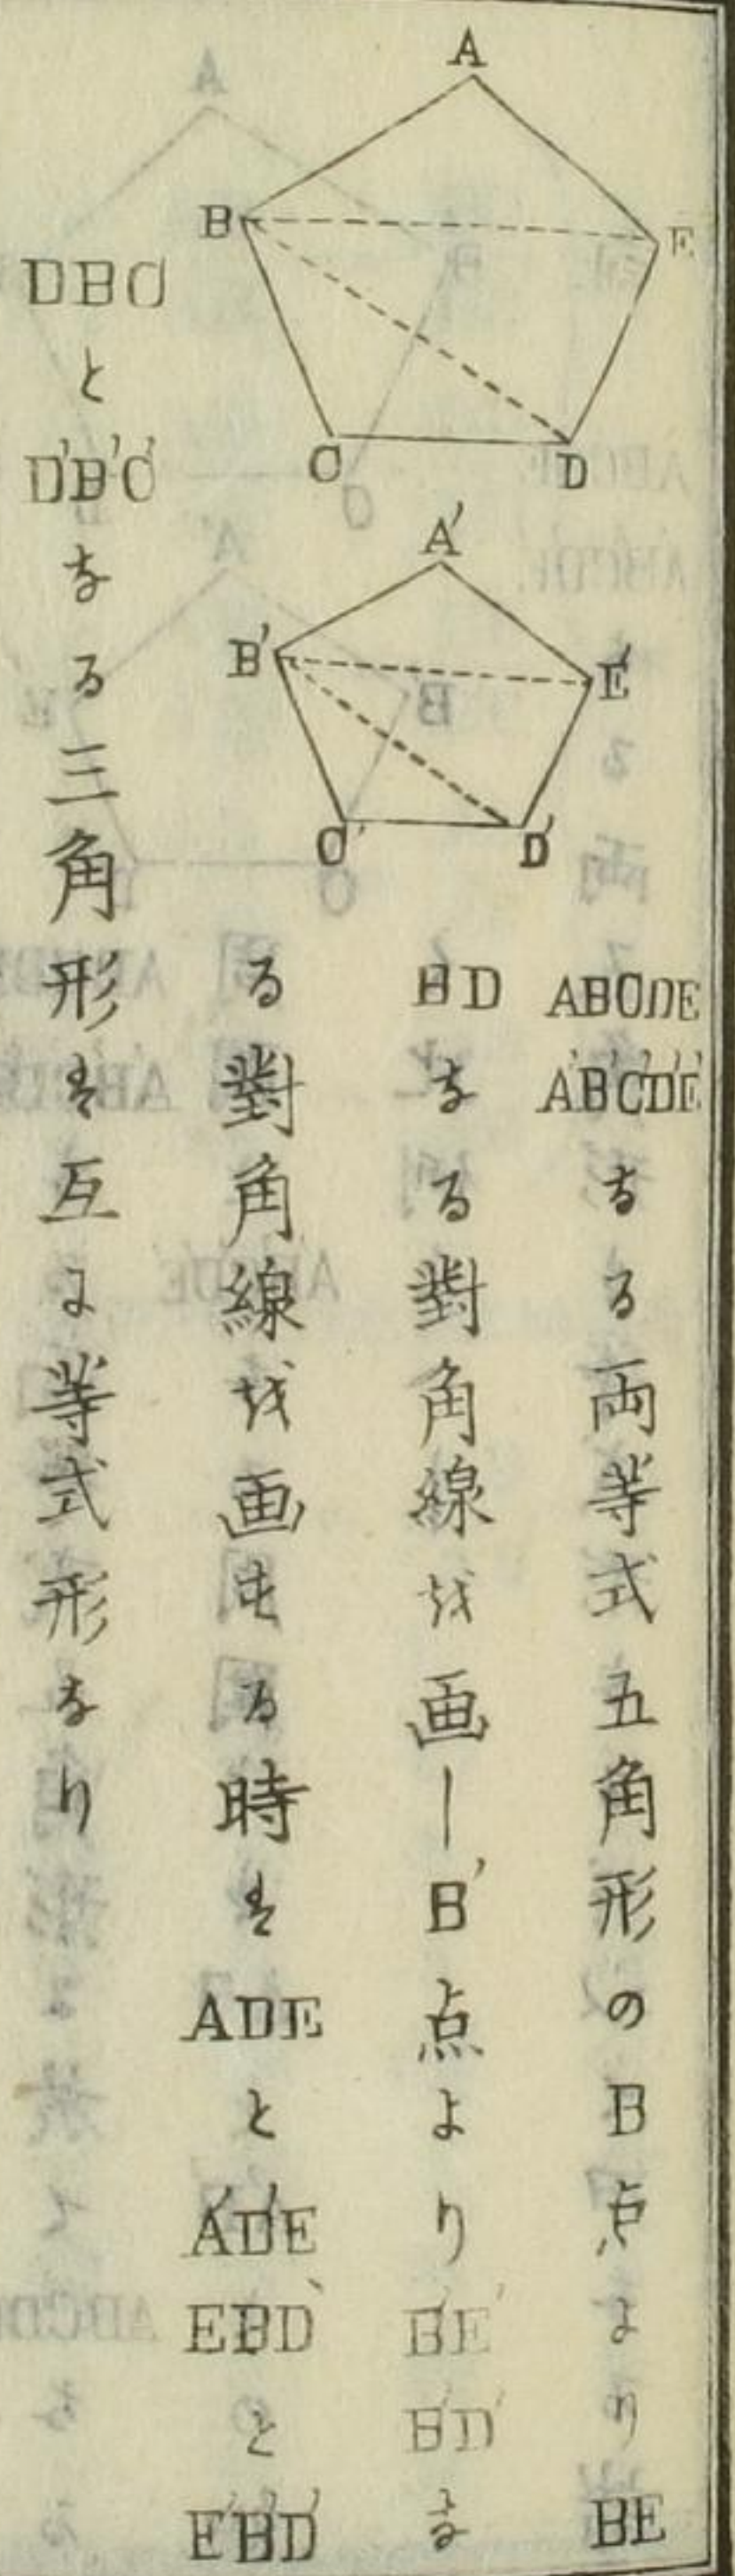 A
B
E
C
D
A'
B'
E'
C'
D'
ABCDE A'B'C'D'E'なる両等式五角形のB点よりBE
BDなる對角線を画しB'点よりB'E' B'D'な
る對角線を画する時はADEとA'D'E EBDとE'B'D'
DBCとD'B'C'なる三角形は互に等式形なり